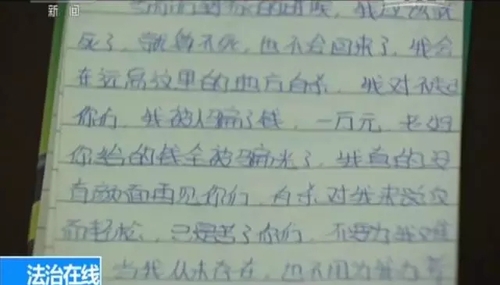 新闻
的时候，我应该
死了，就算不死，也不会回来了，我会
在远离这里的地方自杀，我对不起
你们，我被人骗了钱，一万元，老妈
你给的钱全被骗光了，我真的没
有颜面再见你们，自杀对我来说反
而轻松，只是苦了你们，不要为我难
当我从未存在，也不用为我
法治在线